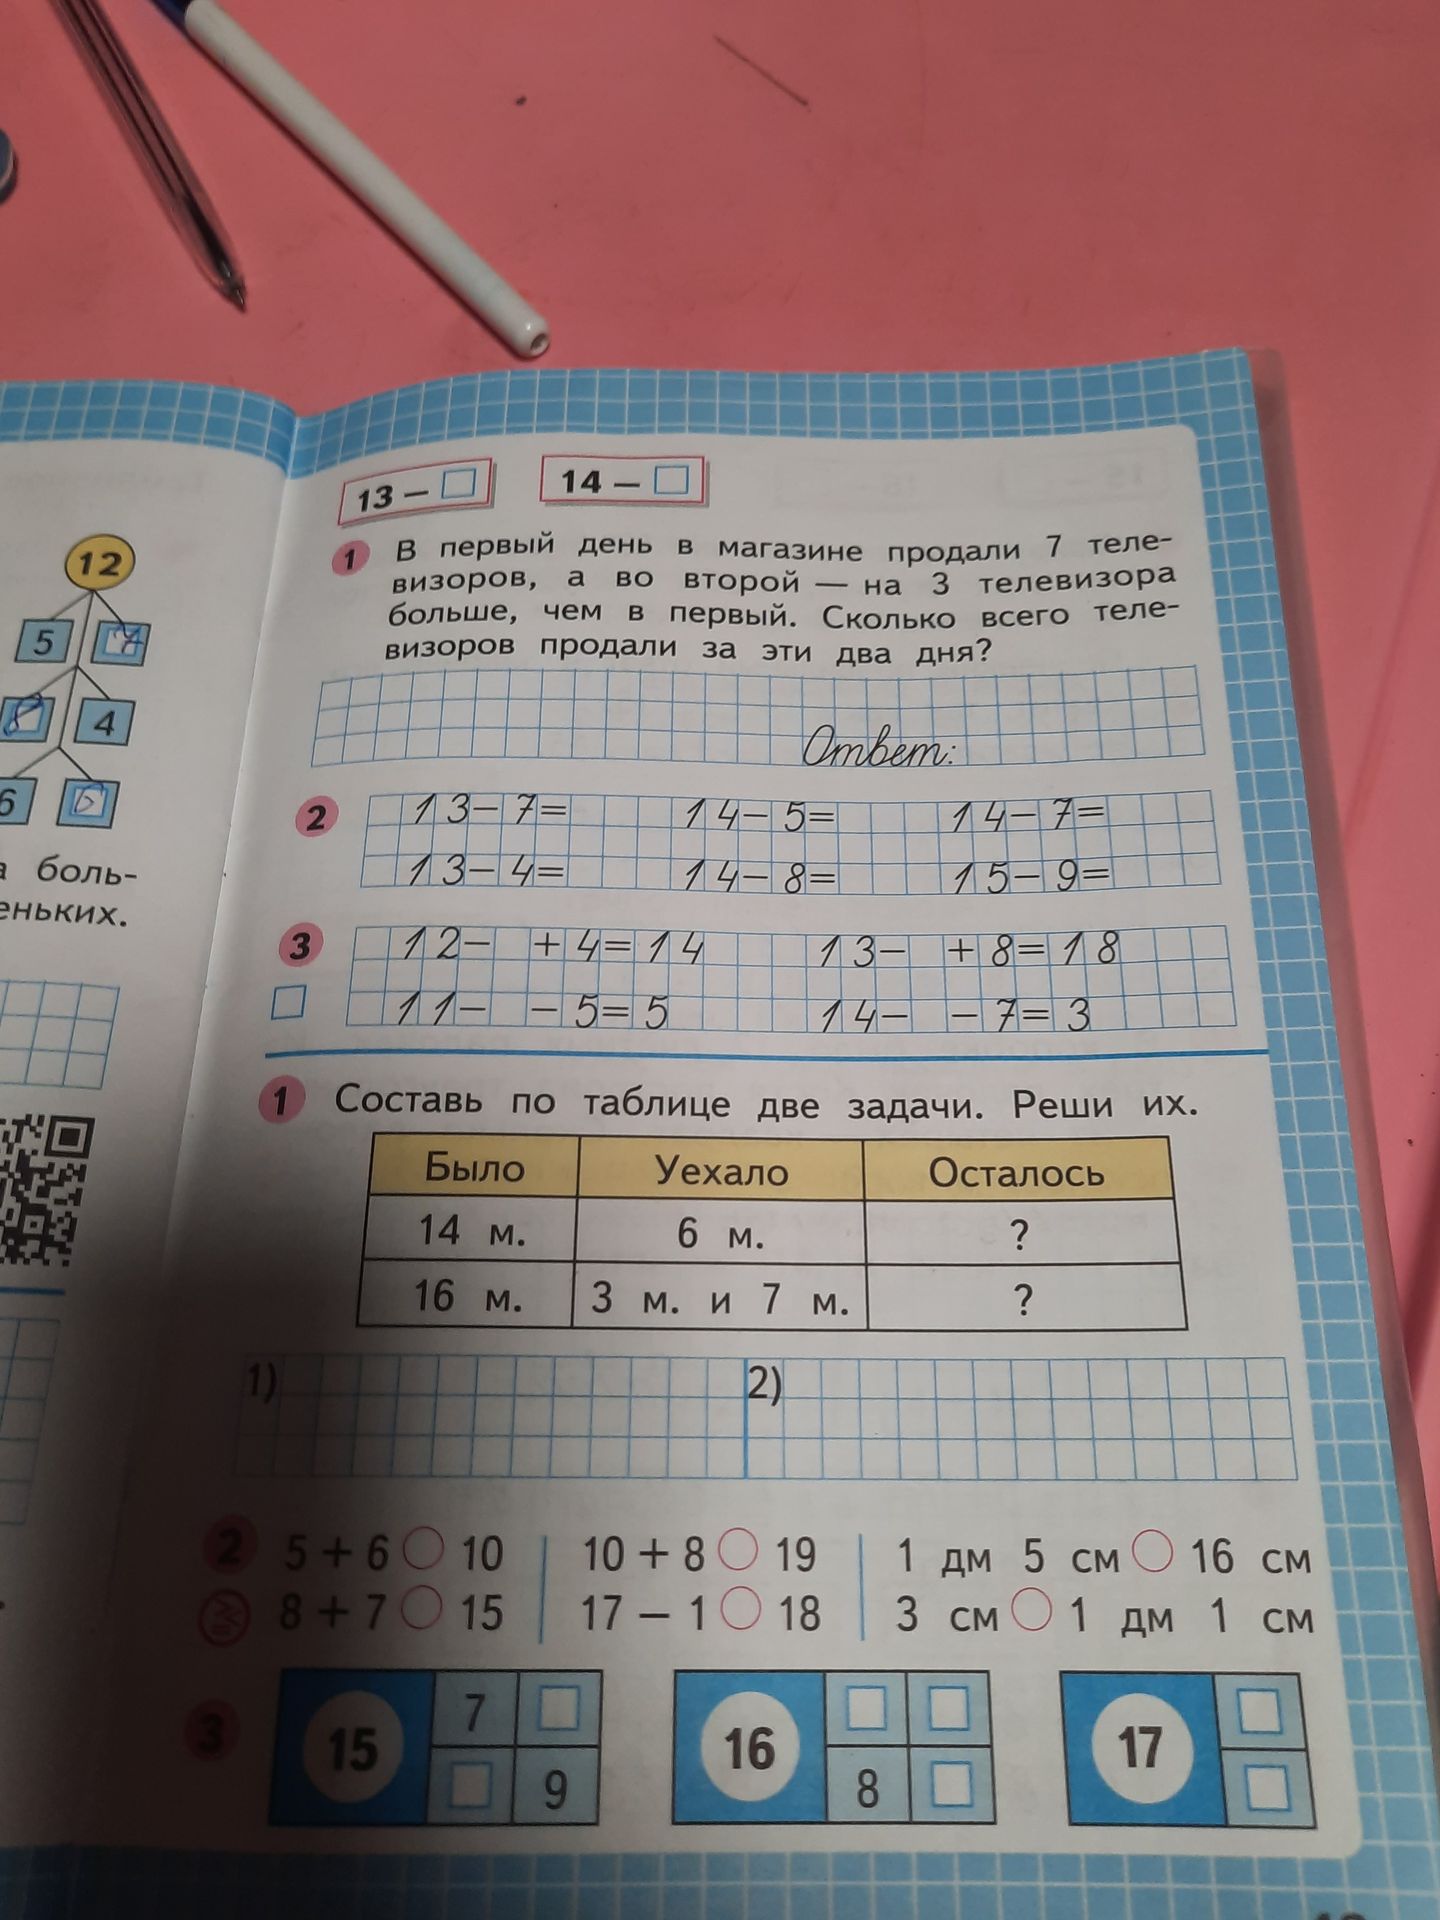 12
5 7
8 4
6 6
а боль-
еньких.
13 –
14 –
1 В первый день в магазине продали 7 теле-
визоров, а во второй — на 3 телевизора
больше, чем в первый. Сколько всего теле-
визоров продали за эти два дня?
Ответ:
2 13–7= 14–5= 14–7=
13–4= 14–8= 15–9=
3 12– +4=14 13– +8=18
11– –5=5 14– –7=3
1 Составь по таблице две задачи. Реши их.
Было Уехало Осталось
14 м. 6 м. ?
16 м. 3 м. и 7 м. ?
1) 2)
2 5 + 6 10 10 + 8 19 1 дм 5 см 16 см
8 + 7 15 17 – 1 18 3 см 1 дм 1 см
3 15 7 9 16 8 17